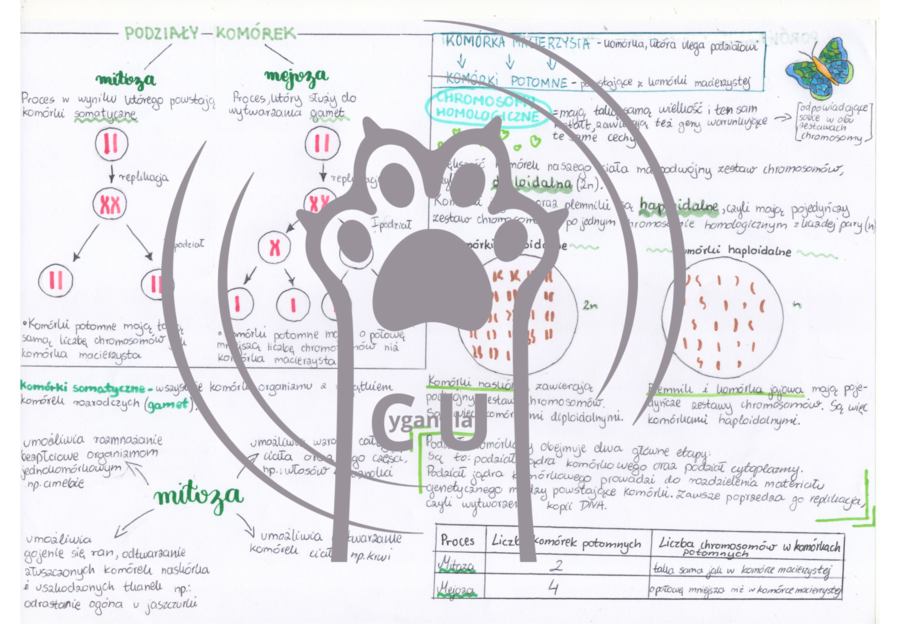 PODZIAŁY KOMÓREK
mitoza
Proces w wyniku którego powstają
komórki somatyczne.
replikacja
podział
•Komórki potomne mają taką
samą liczbę chromosomów
komórka macierzysta
mejoza
Proces, który służy do
wytwarzania gamet.
I podział
komórki potomne o połowę
mniejszą liczbę chromosomów niż
komórka macierzysta
KOMÓRKA MACIERZYSTA - komórka, która ulega podziałowi
KOMÓRKI POTOMNE - powstające z komórki macierzystej
CHROMOSOMY
HOMOLOGICZNE
= mają taką samą wielkość i ten sam
kształt, zawierają też geny warunkujące
te same cechy
[odpowiadające
sobie w obu
zestawach
chromosomy]
komórek naszego ciała ma podwójny zestaw chromosomów,
diploidalna (2n).
oraz plemniki są haploidalne, czyli mają pojedynczy
zestaw po jednym chromosomie homologicznym z każdej pary (n)
2n
komórki haploidalne
n
Komórki naskórka zawierają
podwójny zestaw chromosomów.
Są więc komórkami diploidalnymi.
Plemniki i komórka jajowa mają poje-
dyńcze zestawy chromosomów. Są więc
komórkami haploidalnymi.
komórki somatyczne - wszystkie komórki organizmu z wyjątkiem
komórek rozrodczych (gamet).
umożliwia rozmnażanie
bezpłciowe organizmom
jednokomórkowym
np. amebie
umożliwia wzrost
ciała części,
np.: włosów
mitoza
umożliwia
gojenie się ran, odtwarzanie
złuszczonych komórek naskórka
i uszkodzonych tkanek np:
odrastanie ogona u jaszczurki
umożliwia odtwarzanie
komórek np. krwi
Podział komórkowy obejmuje dwa główne etapy.
Są to: podział jądra komórkowego oraz podział cytoplazmy.
Podział jądra komórkowego prowadzi do rozdzielenia materiału
genetycznego między powstające komórki. Zawsze poprzedza go replikacja,
czyli wytworzenie kopii DNA.
Proces Liczba komórek potomnych Liczba chromosomów w komórkach potomnych
Mitoza 2 taka sama jak w komórce macierzystej
Mejoza 4 o połowę mniejsza niż w komórce macierzystej
CU
yganeria